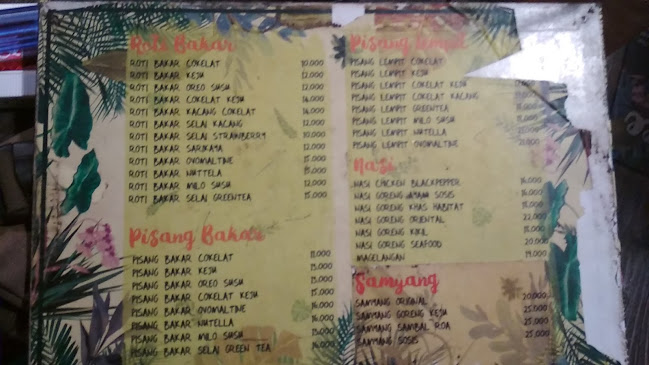 Roti Bakar
ROTI BAKAR COKELAT 10,000
ROTI BAKAR KEJU 12,000
ROTI BAKAR OREO SUSU 12,000
ROTI BAKAR COKELAT KEJU 14,000
ROTI BAKAR KACANG COKELAT 14,000
ROTI BAKAR SELAI KACANG 12,000
ROTI BAKAR SELAI STRAWBERRY 10,000
ROTI BAKAR SARIKAYA 12,000
ROTI BAKAR OVOMALTINE 15,000
ROTI BAKAR NUTTELA 15,000
ROTI BAKAR MILO SUSU 12,000
ROTI BAKAR SELAI GREENTEA 15,000
Pisang Bakar
PISANG BAKAR COKELAT 11,000
PISANG BAKAR KEJU 13,000
PISANG BAKAR OREO SUSU 13,000
PISANG BAKAR COKELAT KEJU 15,000
PISANG BAKAR OVOMALTINE 16,000
PISANG BAKAR NUTELLA 16,000
PISANG BAKAR MILO SUSU 13,000
PISANG BAKAR SELAI GREEN TEA 16,000
Pisang Lempit
PISANG LEMPIT COKELAT
PISANG LEMPIT KEJU
PISANG LEMPIT COKELAT KEJU
PISANG LEMPIT COKELAT KACANG
PISANG LEMPIT GREENTEA
PISANG LEMPIT MILO SUSU
PISANG LEMPIT NUTELLA
PISANG LEMPIT OVOMALTINE
Nasi
NASI CHICKEN BLACKPEPPER 16,000
NASI GORENG AYAM SOSIS 16,000
NASI GORENG KHAS HABITAT 17,000
NASI GORENG ORIENTAL 22,000
NASI GORENG KIKIL 15,000
NASI GORENG SEAFOOD 20,000
MAGELANGAN 19,000
Samyang
SAMYANG ORIGINAL 20,000
SAMYANG GORENG KEJU 25,000
SAMYANG SAMBAL ROA 25,000
SAMYANG SOSIS 25,000